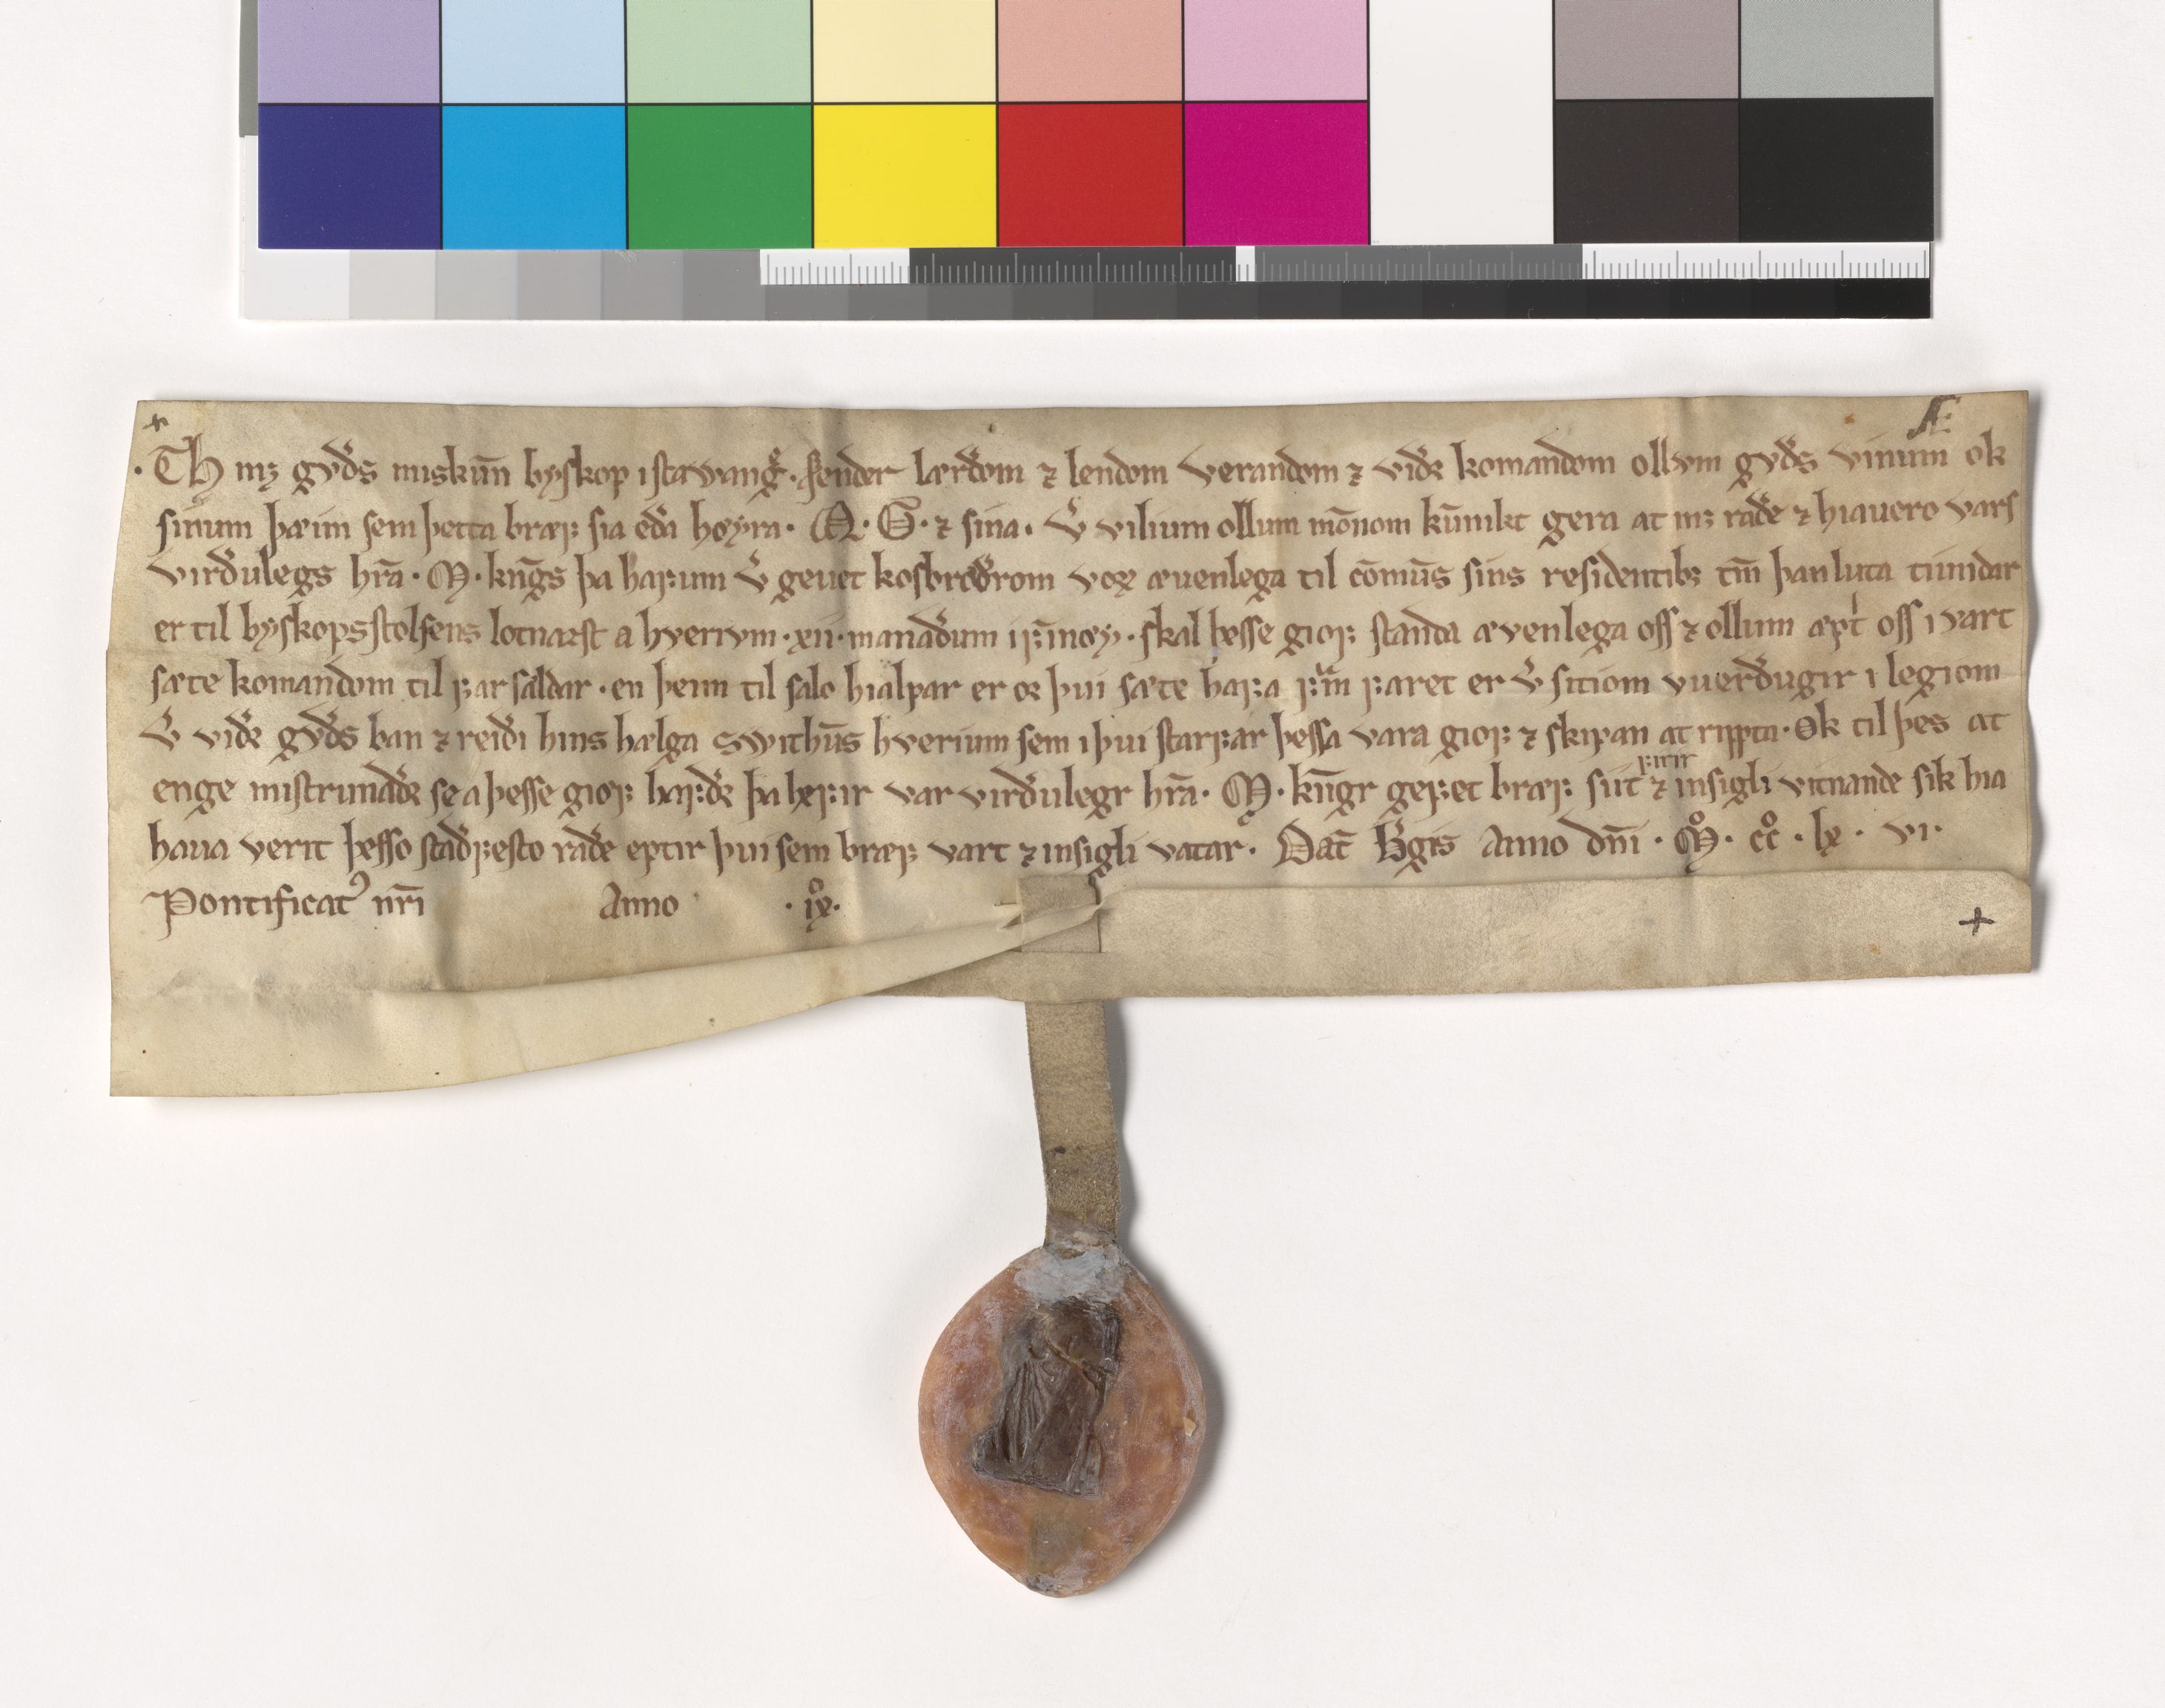 Æ
·Th mꝫ gvðs miskūn byskop i stawangͬ· sender lærðom ⁊ lendom verandom ⁊ viðꝛ komandom ollvm gvðs vinum ok
sinum þæim sem þetta bræꝼ sia eða hoyra· Q· G· ⁊ sina· Ꝟ vilium ollum mōnom kūnikt gera at mꝫ raðe ⁊ hiauero vars
virðulegs hr̄a· M· kn̄gs þa haꝼum ꝟ geuet korsbrœðrom voꝝ æuenlega til cōmūs sins residentibꝫ tm̄ þan luta tiundar
er til byskopsstolsens lotnaꝛst a hverivm ·xii· manaðum i ꝼīnœy· skal þesse gioꝼ standa ævenlega oss ⁊ ollum æptͥ oss i vart
sæte komandom til ꝼarsældar· en þeim til salo hialpar er oꝛ þui sæte haꝼa ꝼͬm ꝼaret er ꝟ sitiom vuerðugir i legiom
Ꝟ viðꝛ gvðs ban ⁊ reiði hins hælga swithūs hverium sem i þui starꝼar þessa vara gioꝼ ⁊ skipan at rippta· Ok til þes at
enge mistrunaðꝛ se a þesse gioꝼ haꝼðꝛ þa heꝼir var virðulegr hr̄a· M· kn̄gr geꝼet bræꝼ sut ꝼirir ⁊ insigli vitnande sik hia
haua verit þesso staðꝼesto raðe eptir þui sem bræꝼ vart ⁊ insigli vatar· Dat̄ B̄gis Anno dn̄i · M̊· cc̊ · lx · vi·
Pontificatꝰ nr̄i Anno · ix̊·